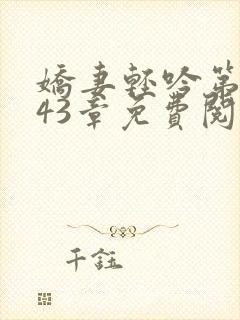 嬌妻輕吟第
43章免費閱
千鈺